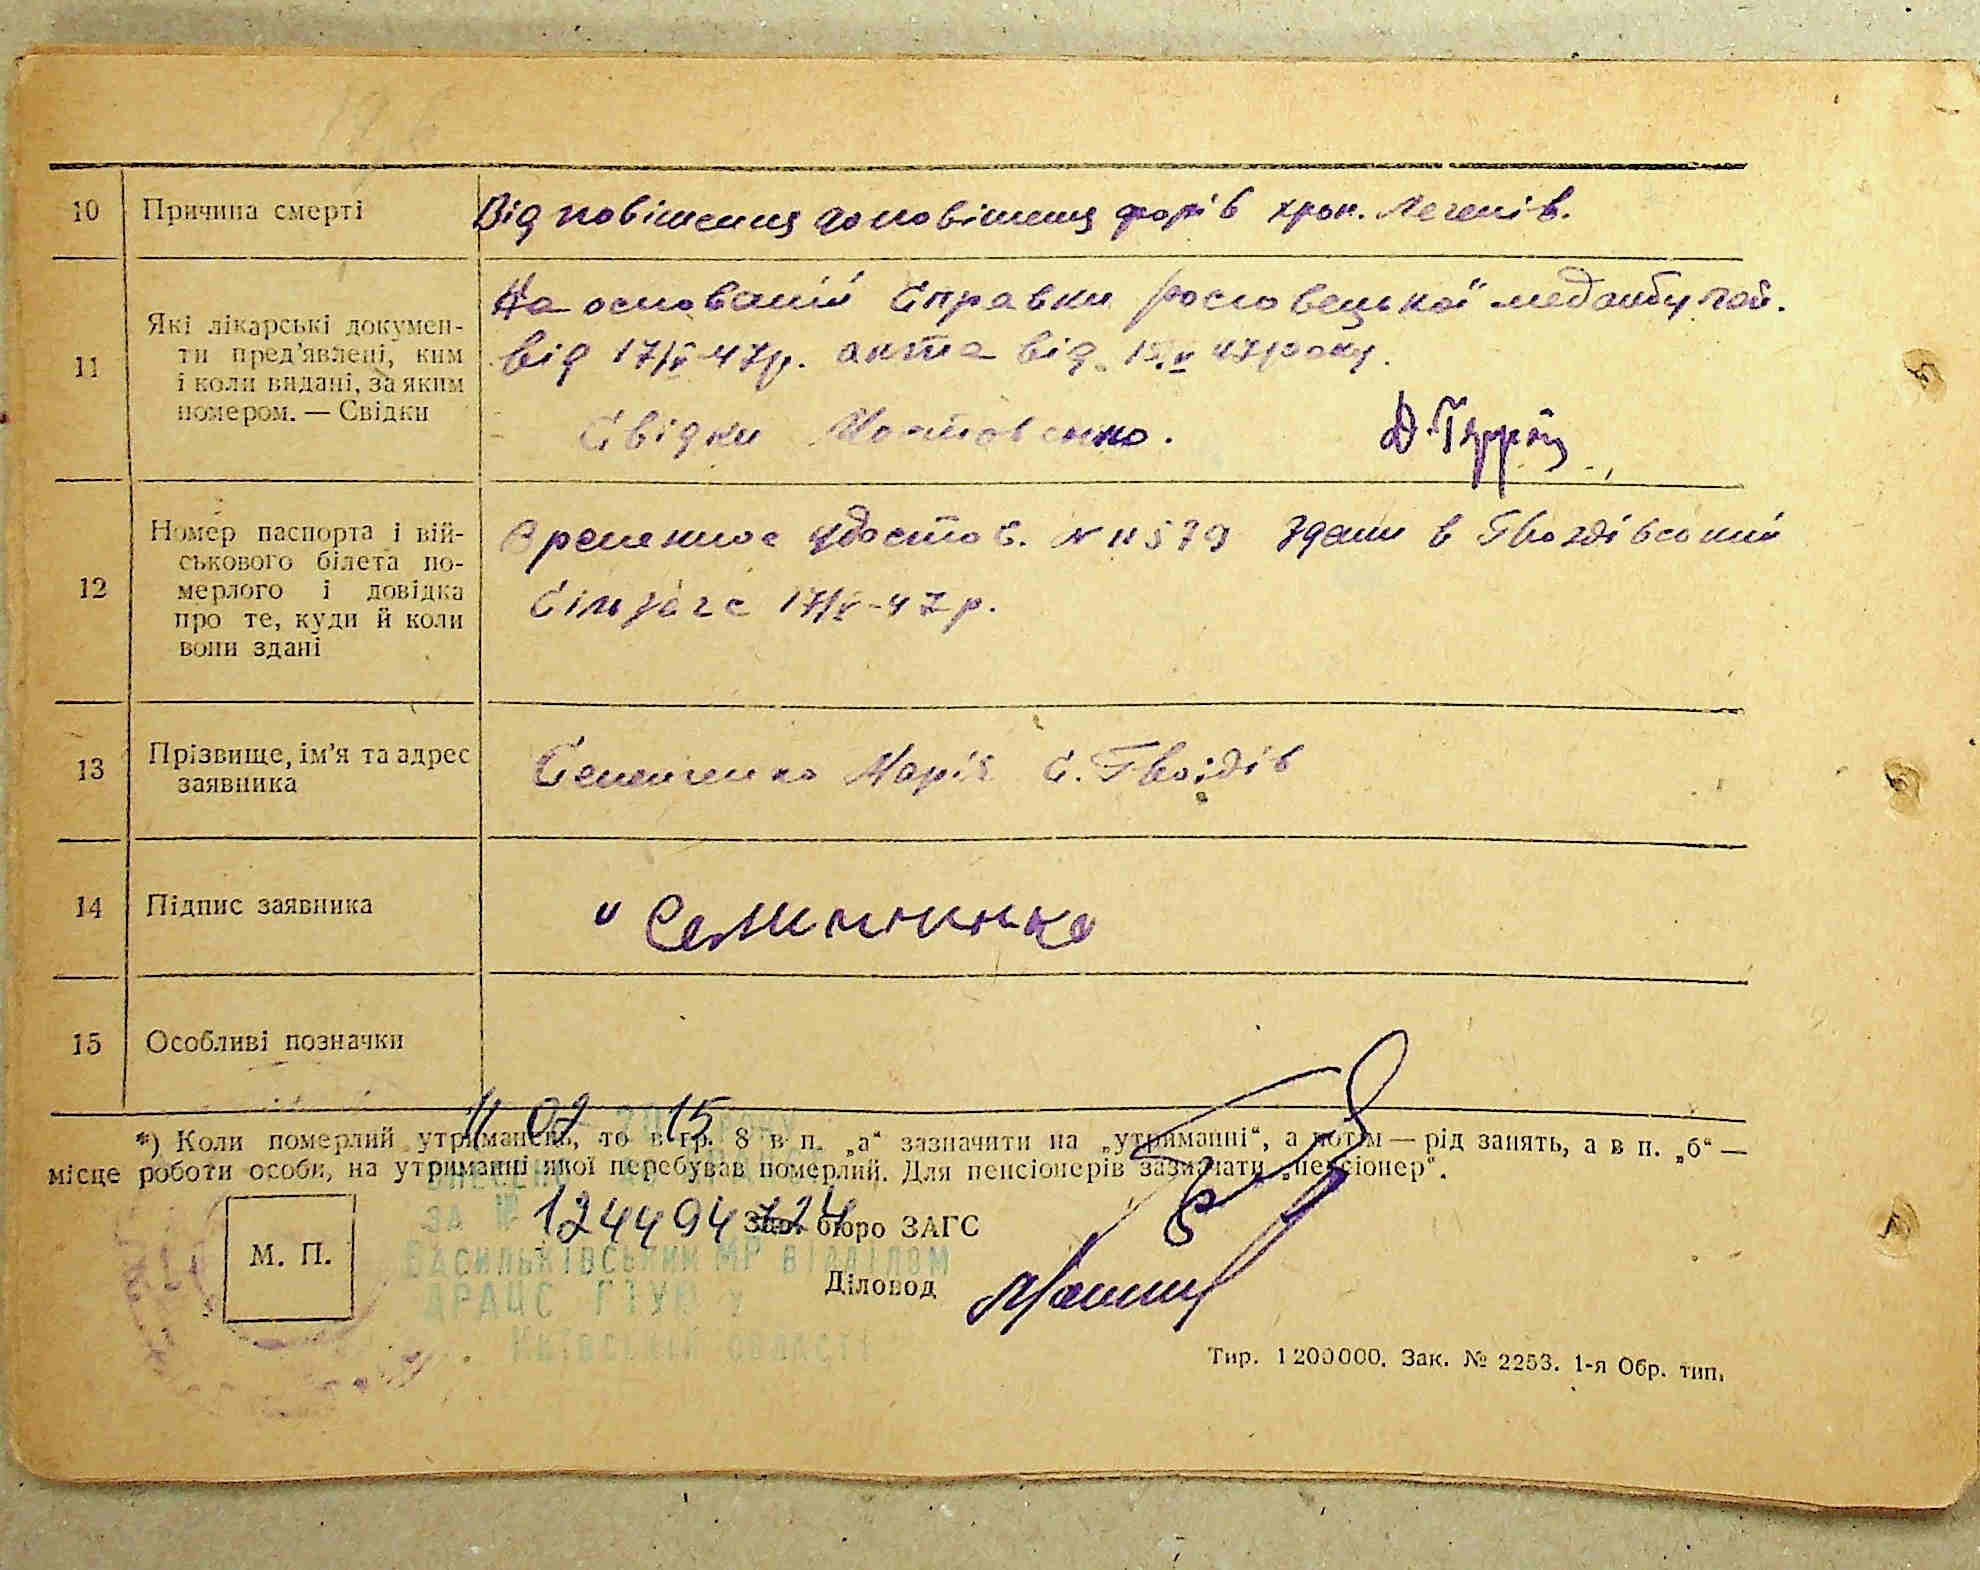 10 Причина смерті
Від повішення
хрон. легенів.
11 Які лікарські докумен-
ти пред'явлені, ким
і коли видані, за яким
номером. — Свідки
На основаній Справки
від 17/V-47р. акта від 17/V 47 року.
Свідки
12 Номер паспорта і вій-
ськового білета по-
мерлого і довідка
про те, куди й коли
вони здані
Временное удостов. № 11579 здани в Гвоздівський
Сільраге 17/V-47р.
13 Прізвище, ім'я та адрес
заявника
Семенченко Марія С. Гвоздів
14 Підпис заявника
15 Особливі позначки
11 02 2015 року
*) Коли померлий утриманець, то в гр. 8 в п. „а“ зазначити на „утриманні“, а потім — рід занять, а в п. „б“ —
місце роботи особи, на утриманні якої перебував померлий. Для пенсіонерів зазначати „пенсіонер“.
ВНЕСЕНО
ЗА № 124494724
Зав. бюро ЗАГС
ВАСИЛЬКІВСЬКИМ МР ВІДДІЛОМ
М. П.
Діловод
ДРАЦС ГТУЮ У
КИЇВСЬКІЙ ОБЛАСТІ
Тир. 1 200 000. Зак. № 2253. 1-я Обр. тип.